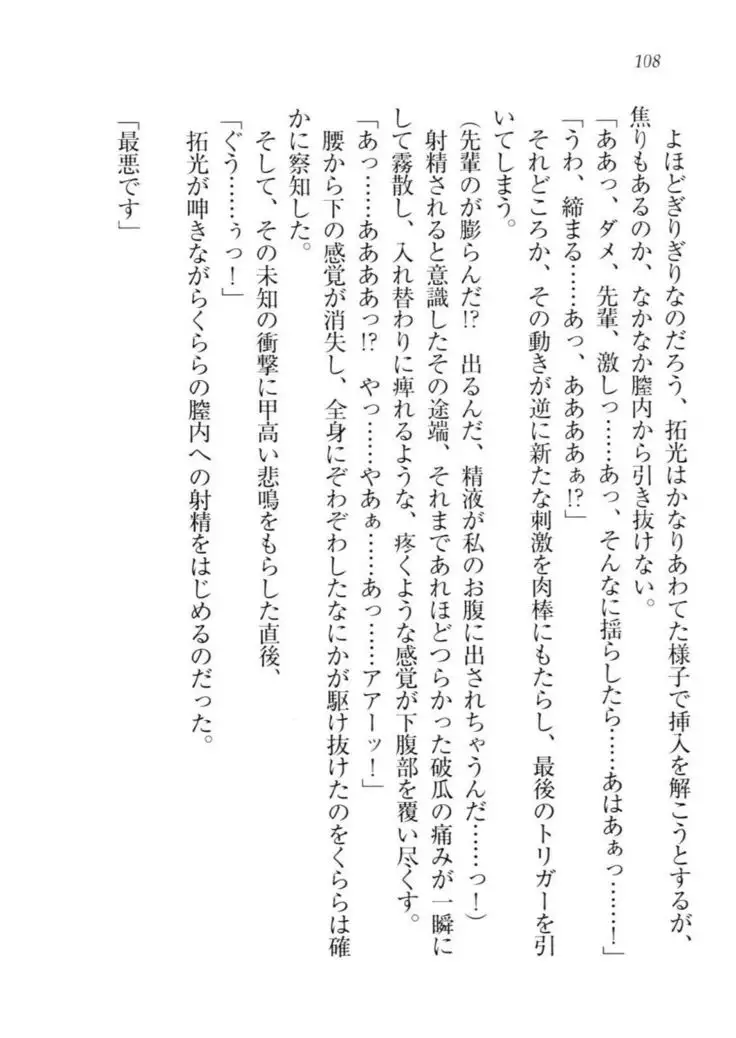 108
よほどぎりぎりなのだろう、拓光はかなりあわてた様子で挿入を解こうとするが、
焦りもあるのか、なかなか膣内から引き抜けない。
「ああっ、ダメ、先輩、激しっ……あっ、そんなに揺らしたら……あはあぁっ……！」
「うわ、締まる……あっ、ああああぁ!?」
それどころか、その動きが逆に新たな刺激を肉棒にもたらし、最後のトリガーを引
いてしまう。
（先輩のが膨らんだ!?　出るんだ、精液が私のお腹に出されちゃうんだ……っ！）
射精されると意識したその途端、それまであれほどつらかった破瓜の痛みが一瞬に
して霧散し、入れ替わりに痺れるような、疼くような感覚が下腹部を覆い尽くす。
「あっ……ああああっ!?　やっ……やあぁ……あっ……アアーッ！」
腰から下の感覚が消失し、全身にぞわぞわしたなにかが駆け抜けたのをくららは確
かに察知した。
そして、その未知の衝撃に甲高い悲鳴をもらした直後、
「ぐう……ぅっ！」
拓光が呻きながらくららの膣内への射精をはじめるのだった。
「最悪です」